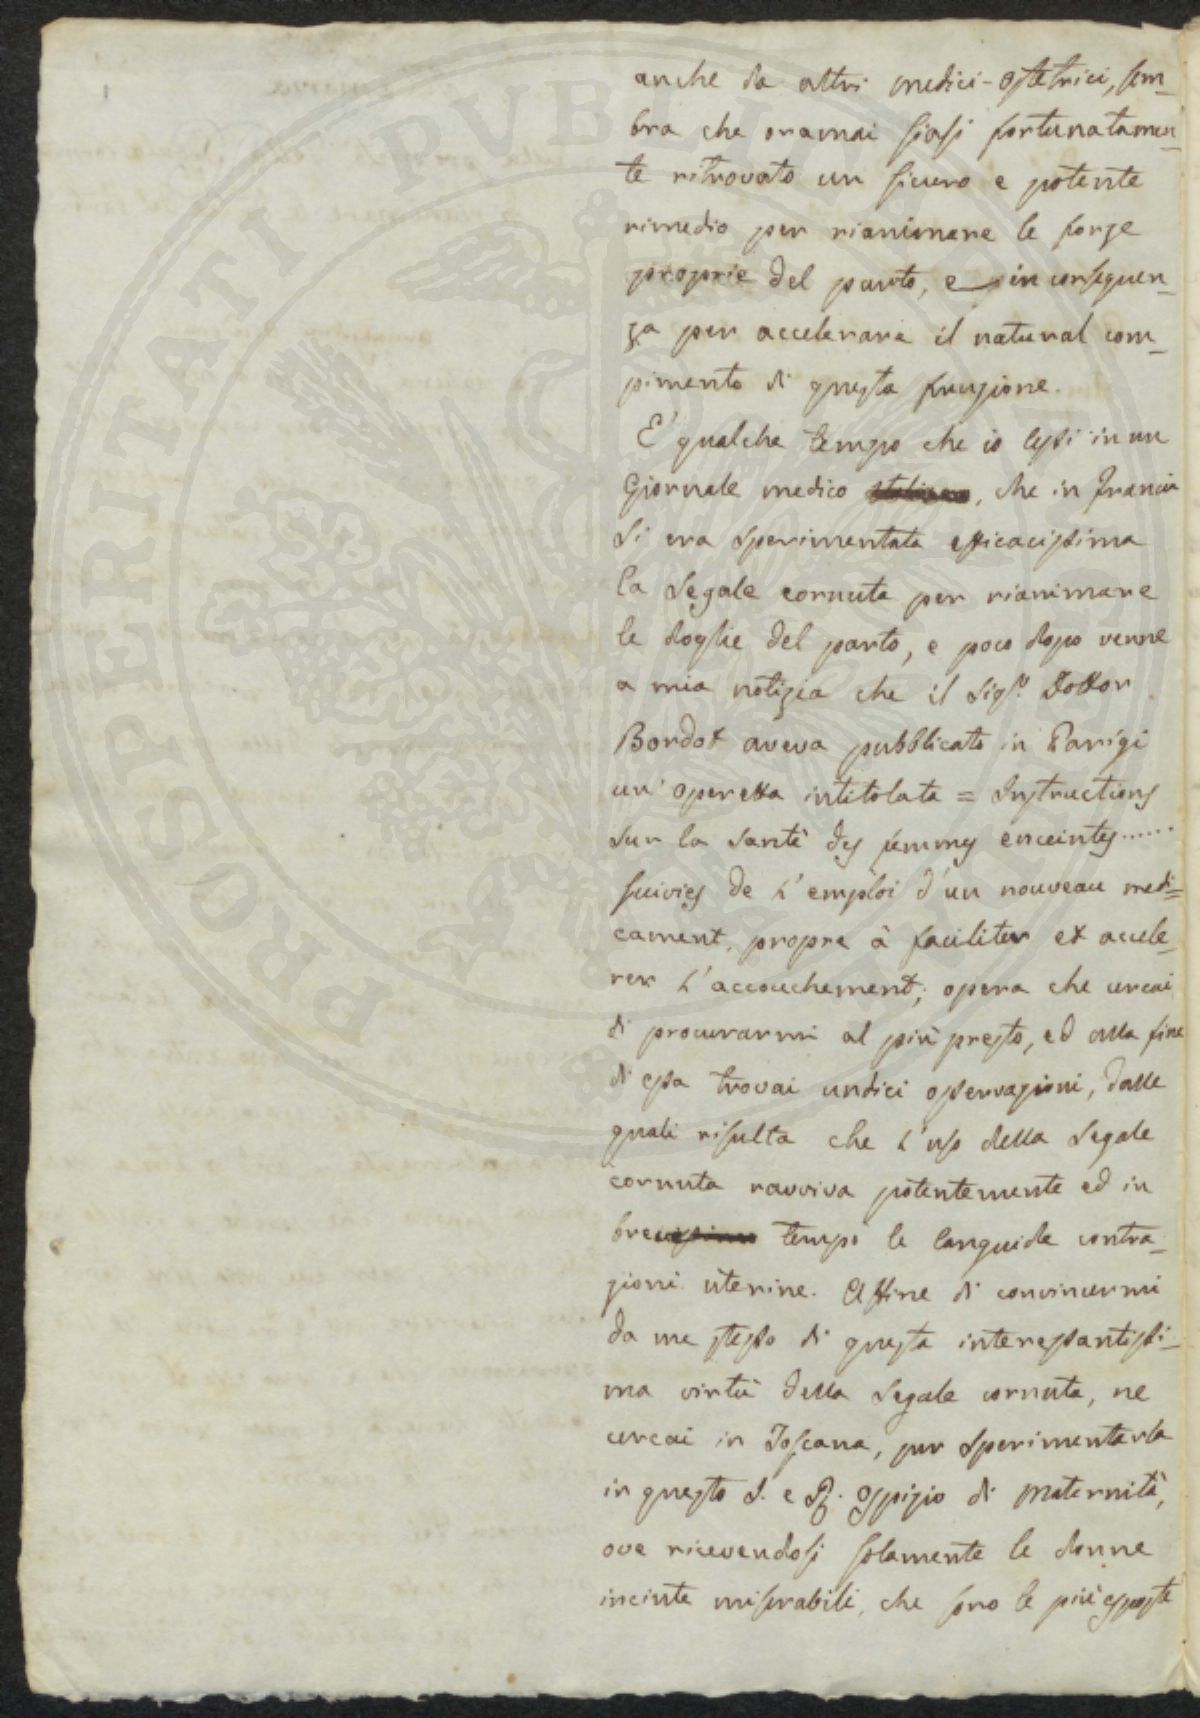 anche da altri medici-ostetrici, sem-
bra che oramai siasi fortunatamen-
te ritrovato un sicuro e potente
rimedio per rianimare le forze
proprie del parto, e in conseguen-
za per accelerare il natural com-
pimento di questa funzione.
E' qualche tempo che io lessi in un
Giornale medico, che in Francia
si era sperimentata efficacissima
la Segale cornuta per rianimare
le doglie del parto, e poco dopo venne
a mia notizia che il Sigr. Dottor
Bordot aveva pubblicato in Parigi
un' operetta intitolata = Instructions
sur la santè des femmes enceintes......
suivies de l'emploi d'un nouveau medi=
cament, propre à faciliter et accele-
rer l'accouchement; opera che cercai
di procurarmi al più presto, ed alla fine
di essa trovai undici osservazioni, dalle
quali risulta che l'uso della Segale
cornuta ravviva potentemente ed in
breve tempo le languide contra-
zioni uterine. Affine di convincermi
da me stesso di questa interessantissi-
ma virtù della Segale cornuta, ne
cercai in Toscana, per sperimentarla
in questo I. e R. Ospizio di Maternità,
ove ricevendosi solamente le donne
incinte miserabili, che sono le più esposte
PROSPERITATI PVBLICAE